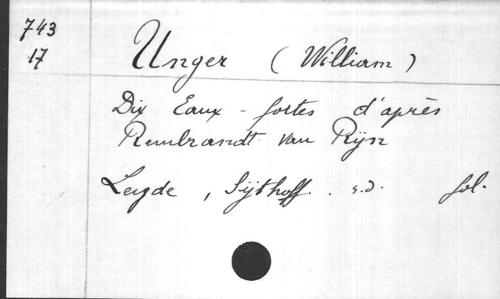 743
17
Unger (William)
Dix Eaux-fortes d'après
Rembrandt van Rijn
Leyde, Sijthoff. s.d. fol.